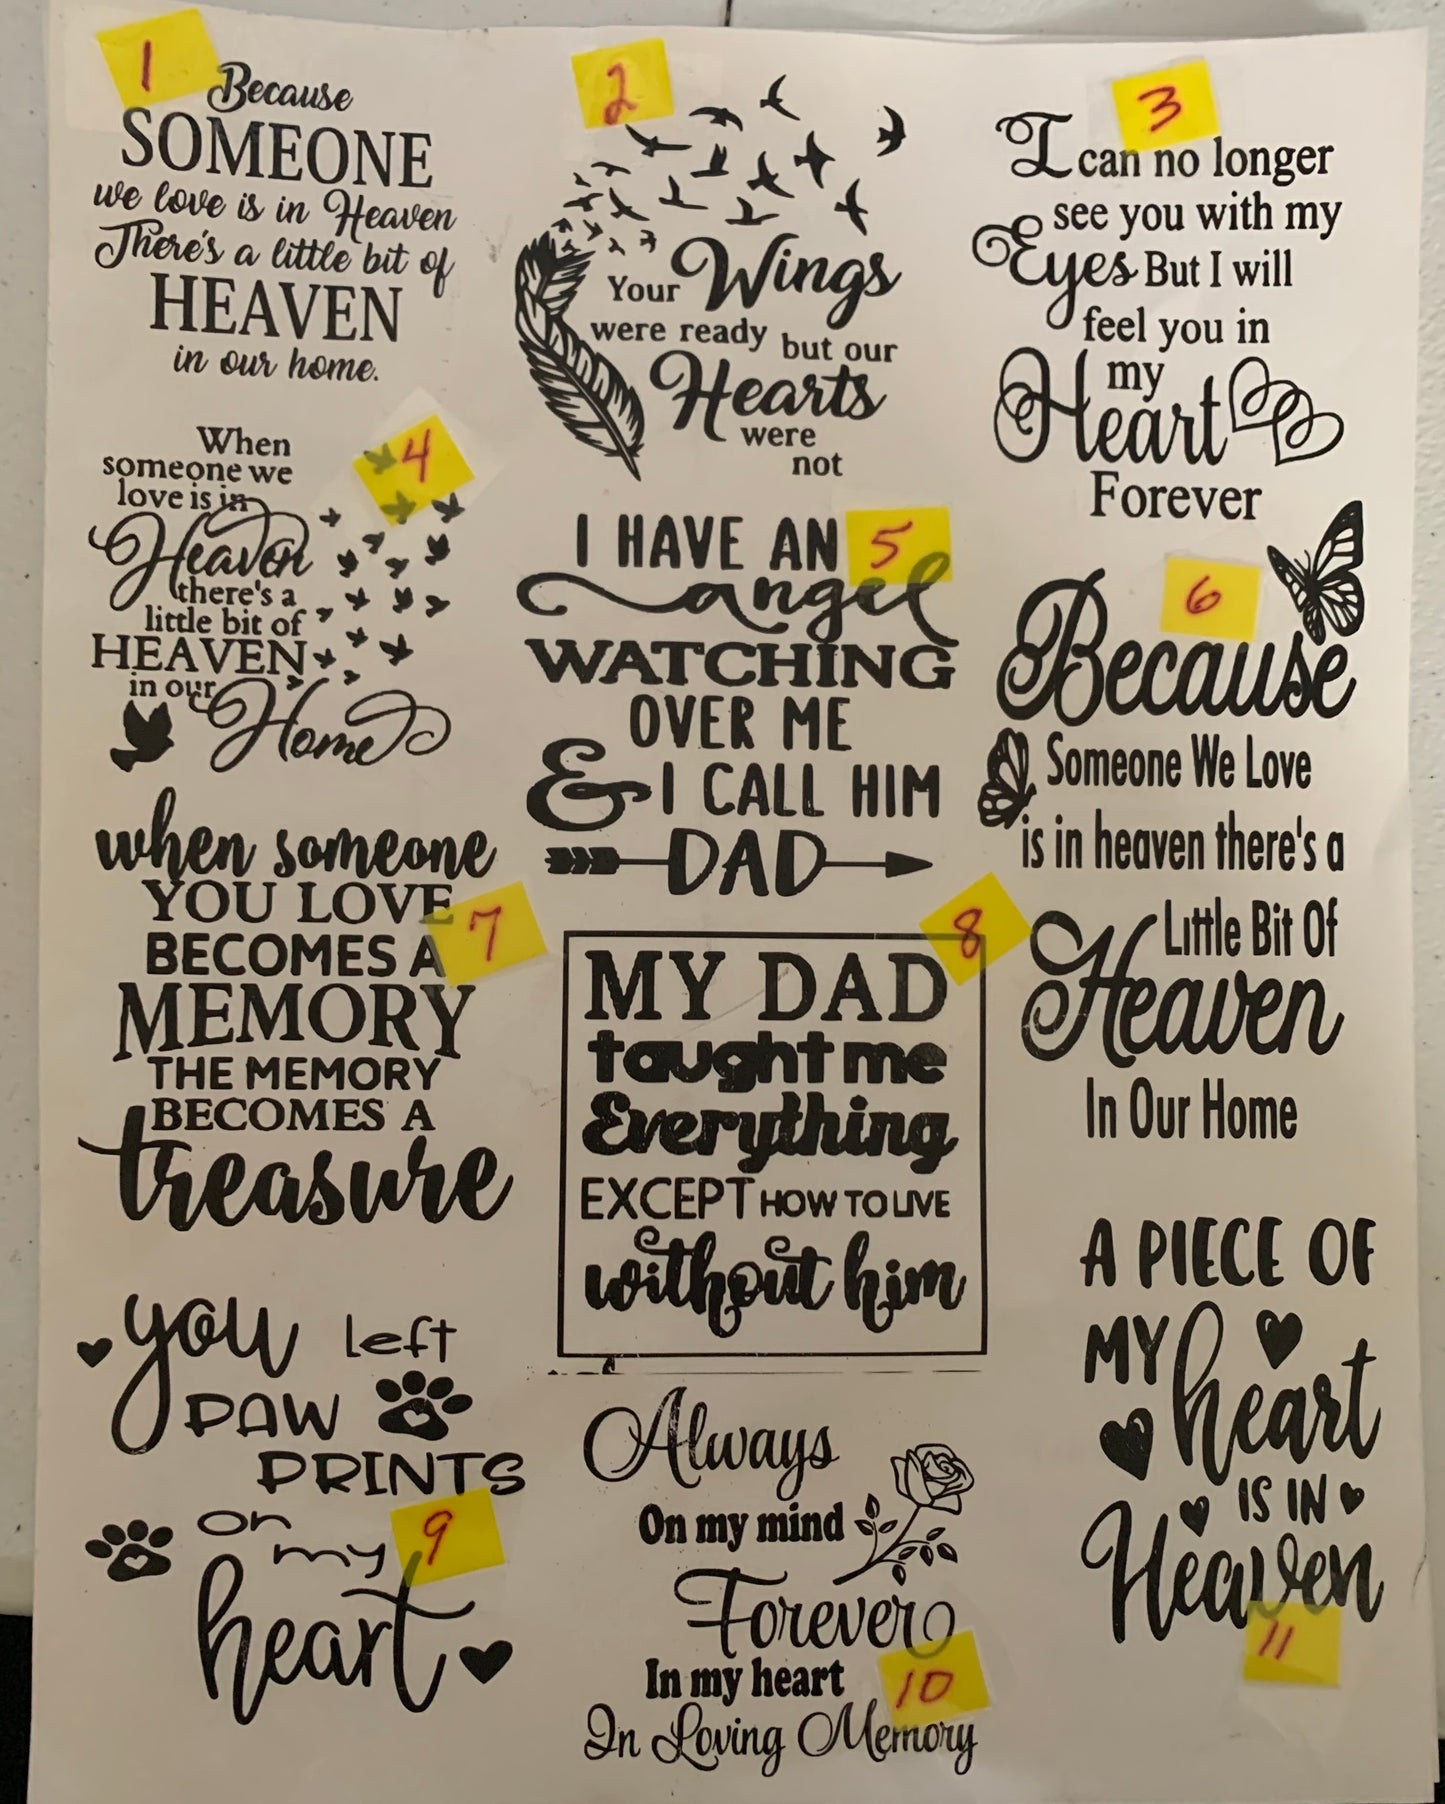 1
Because
SOMEONE
we love is in Heaven
There's a little bit of
HEAVEN
in our home.
2
Your Wings
were ready but our
Hearts
were
not
3
I can no longer
see you with my
Eyes But I will
feel you in
my
Heart
Forever
4
When
someone we
love is in
Heaven
there's a
little bit of
HEAVEN
in our
Home
5
I HAVE AN
angel
WATCHING
OVER ME
& I CALL HIM
DAD
6
Because
Someone We Love
is in heaven there's a
Little Bit Of
Heaven
In Our Home
7
when someone
YOU LOVE
BECOMES A
MEMORY
THE MEMORY
BECOMES A
treasure
8
MY DAD
taught me
Everything
EXCEPT HOW TO LIVE
without him
you left
PAW
PRINTS
on
my
9
heart
Always
On my mind
Forever
In my heart
10
In Loving Memory
A PIECE OF
MY heart
IS IN
Heaven
11